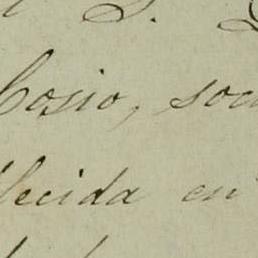 S.
Cosio, soc
lecida en